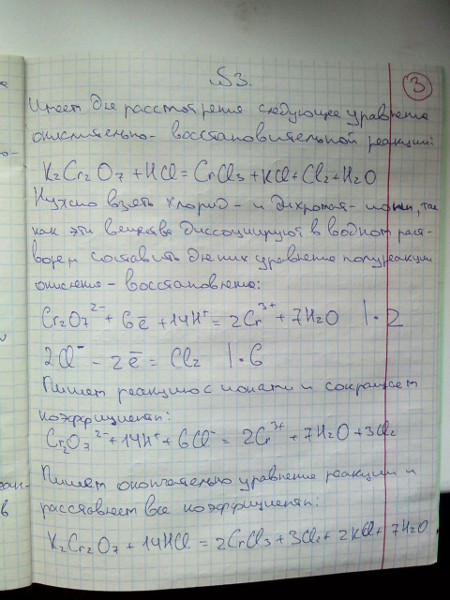 №3. 3
Имеем для рассмотрения следующее уравнение
окислительно-восстановительной реакции:
K₂Cr₂O₇ + HCl = CrCl₃ + KCl + Cl₂ + H₂O
Нужно взять хлорид- и дихромат-ионы, так
как эти вещества диссоциируют в водном раст-
воре и составить для них уравнение полуреакции
окисления-восстановления:
Cr₂O₇²⁻ + 6ē + 14H⁺ = 2Cr³⁺ + 7H₂O |·2
2Cl⁻ - 2ē = Cl₂ |·6
Пишем реакцию с ионами и сокращаем
коэффициенты:
Cr₂O₇²⁻ + 14H⁺ + 6Cl⁻ = 2Cr³⁺ + 7H₂O + 3Cl₂
Пишем окончательно уравнение реакции и
расставляем все коэффициенты:
K₂Cr₂O₇ + 14HCl = 2CrCl₃ + 3Cl₂ + 2KCl + 7H₂O